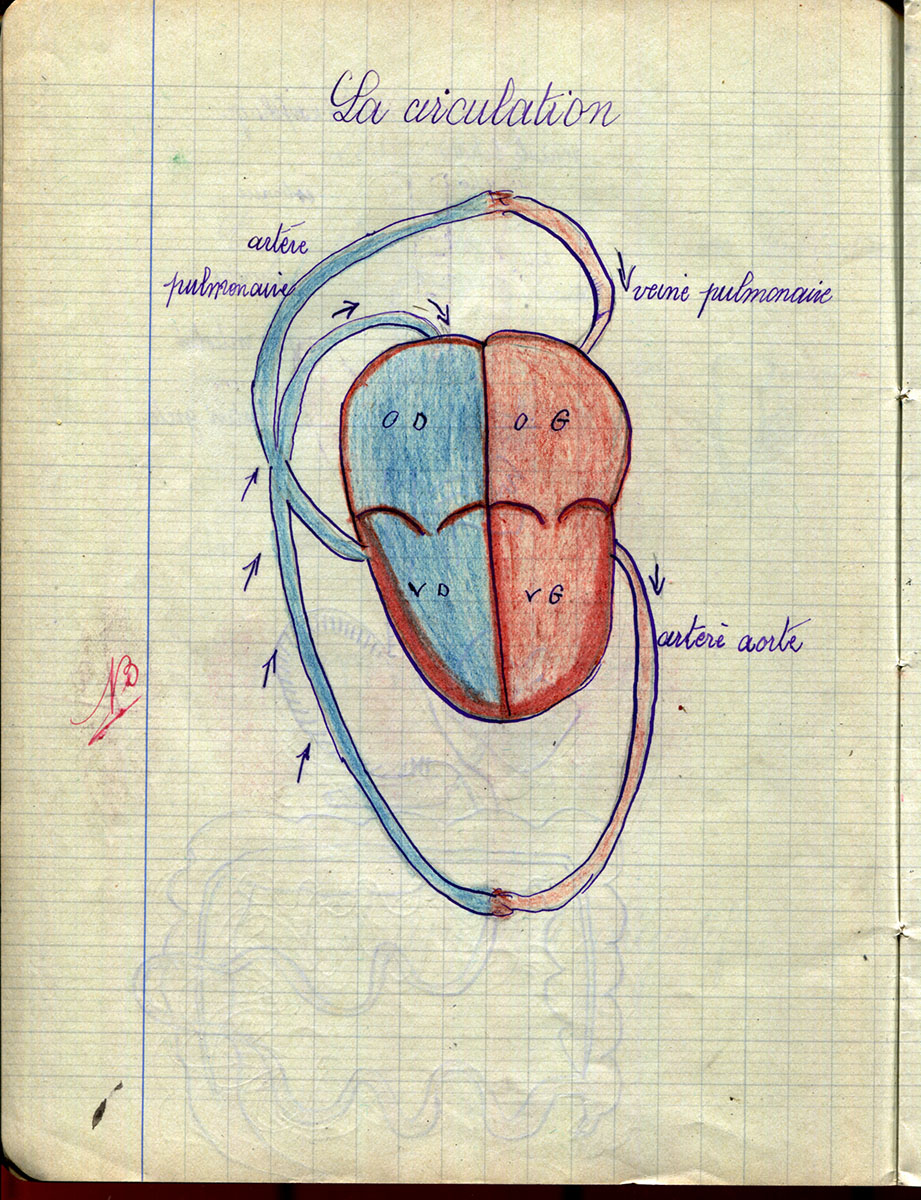 La circulation
artère
pulmonaire
veine pulmonaire
O D
O G
V D
V G
artère aorte